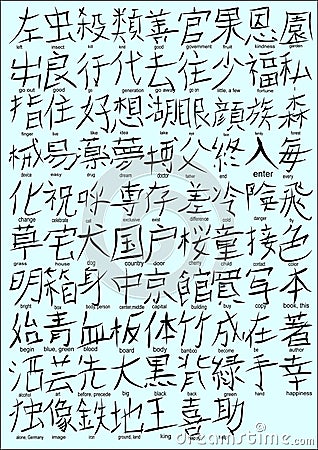 左虫殺類善官果恩園
left insect kill kind good government fruit kindness garden
出良行代去往少福私
go out good go generation go away go on little, a few fortune I
指住好想湖眼顔族森
finger live like idea lake eye face family forest
械易薬夢博父終入毎
device easy drug dream father end enter every
化祝呼専存差冷険飛
change celebrate call exclusive exist difference cold danger fly
草宅犬国戸桜童接色
grass house dog country door cherry child contact color
明箱身中京館買写本
bright box body, person center, middle capital building buy copy book, this
始青血板体竹成在著
begin blue, green blood board body bamboo become be author
酒芸先大黒背緑手幸
alcohol art before big black back green hand happiness
独像鉄地王喜助
alone, Germany image iron ground, land king happy help
dreamstime